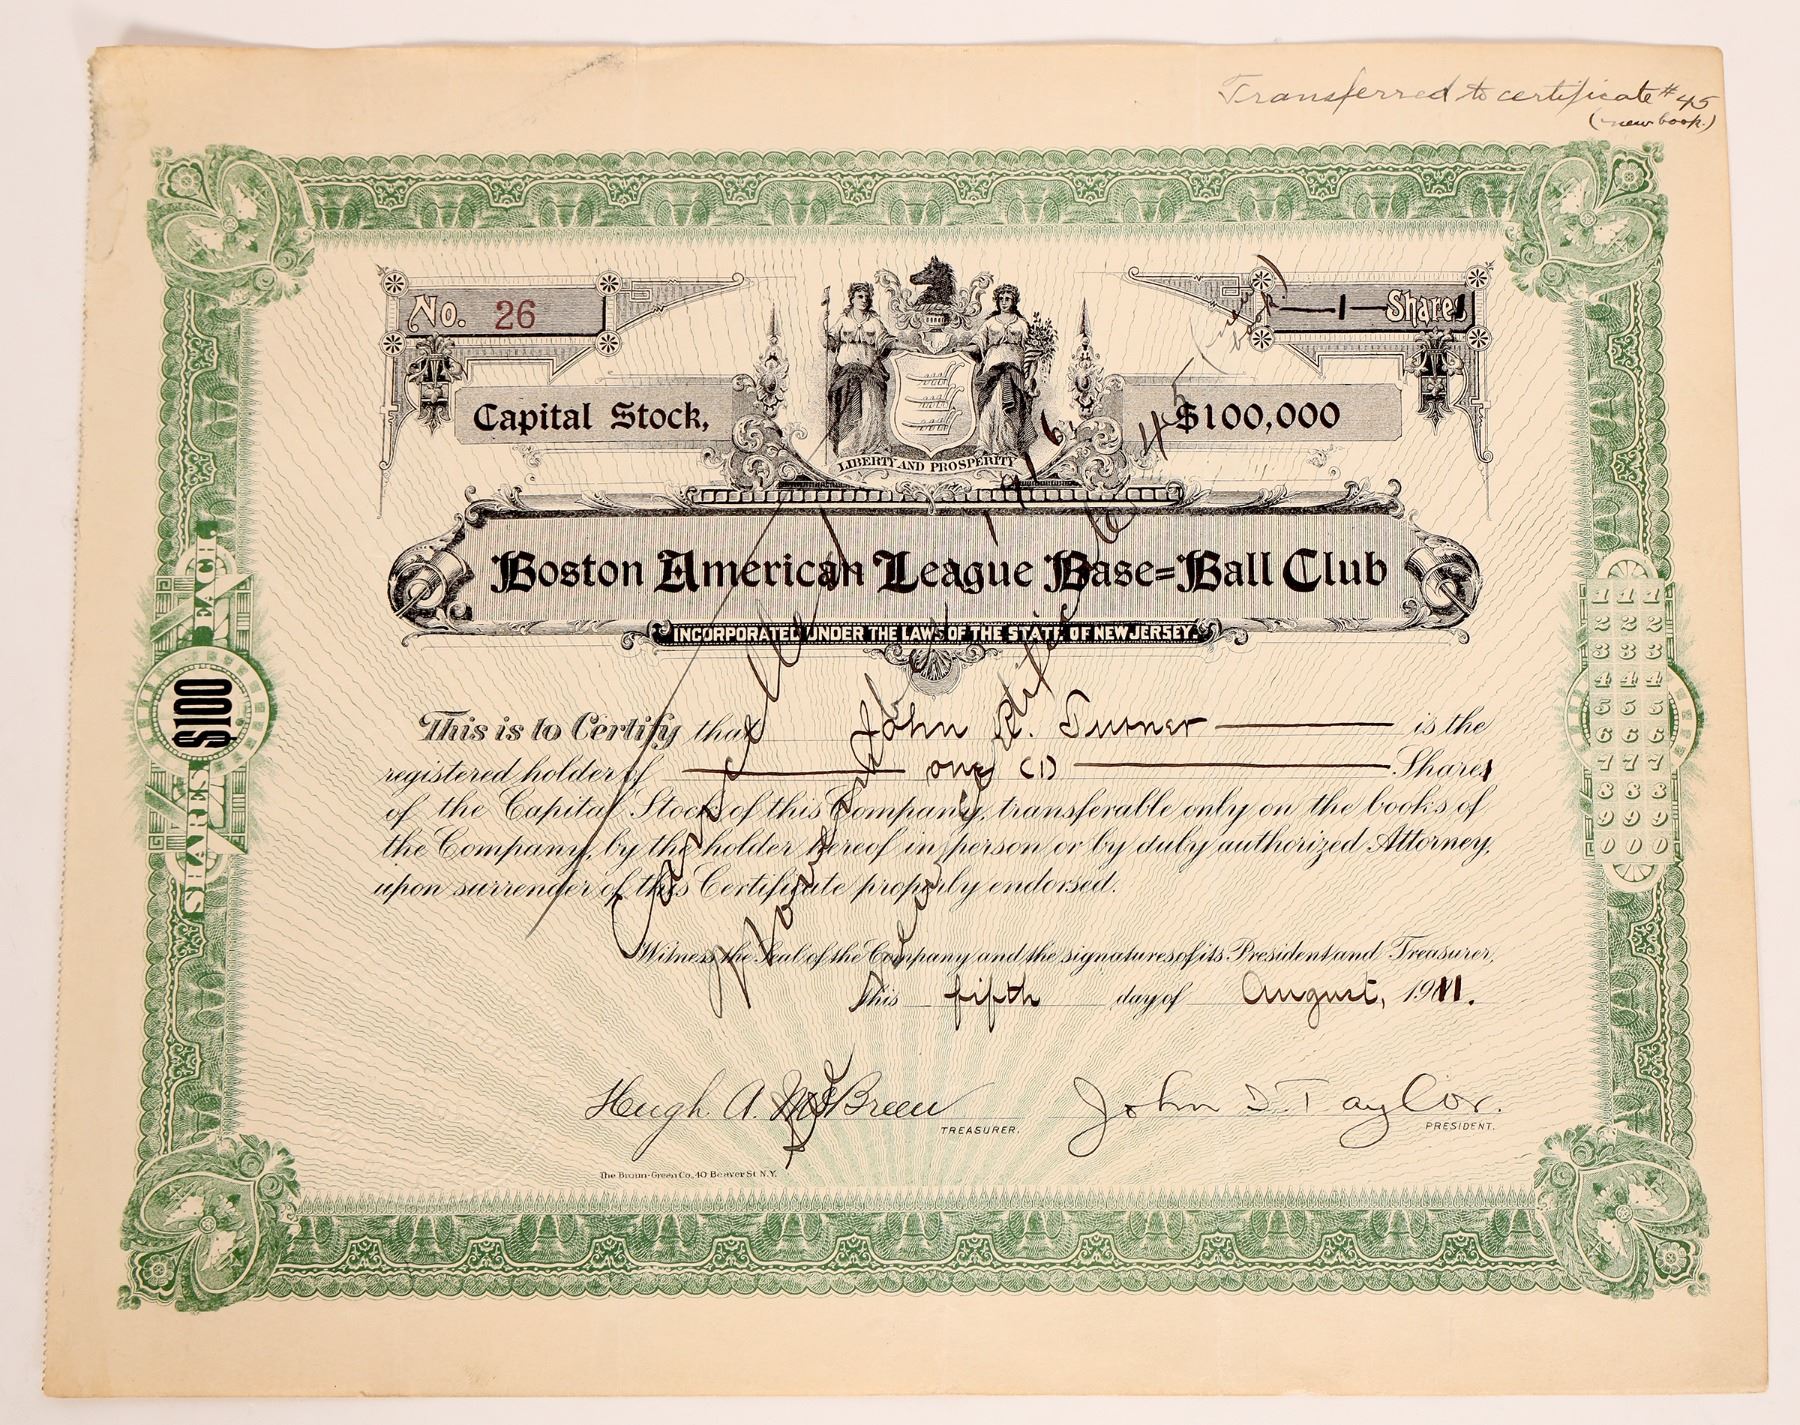 Transferred to certificate #45
(new book.)
No. 26
—1— Share
Capital Stock, $100,000
LIBERTY AND PROSPERITY
Boston American League Base=Ball Club
INCORPORATED UNDER THE LAWS OF THE STATE OF NEW JERSEY.
SHARES $100 EACH
1 1 1
2 2 2
3 3 3
4 4 4
5 5 5
6 6 6
7 7 7
8 8 8
9 9 9
0 0 0
This is to Certify that John R. Turner is the
registered holder of one (1) Share
of the Capital Stock of this Company, transferable only on the books of
the Company, by the holder hereof in person or by duly authorized Attorney,
upon surrender of this Certificate properly endorsed.
Witness the Seal of the Company and the signatures of its President and Treasurer,
this fifth day of August, 1911.
Cancelled
November 1 1916.
See new certificate 45 (new book)
Hugh A. McBreen
TREASURER.
John I. Taylor.
PRESIDENT.
The Braun-Green Co., 40 Beaver St. N.Y.